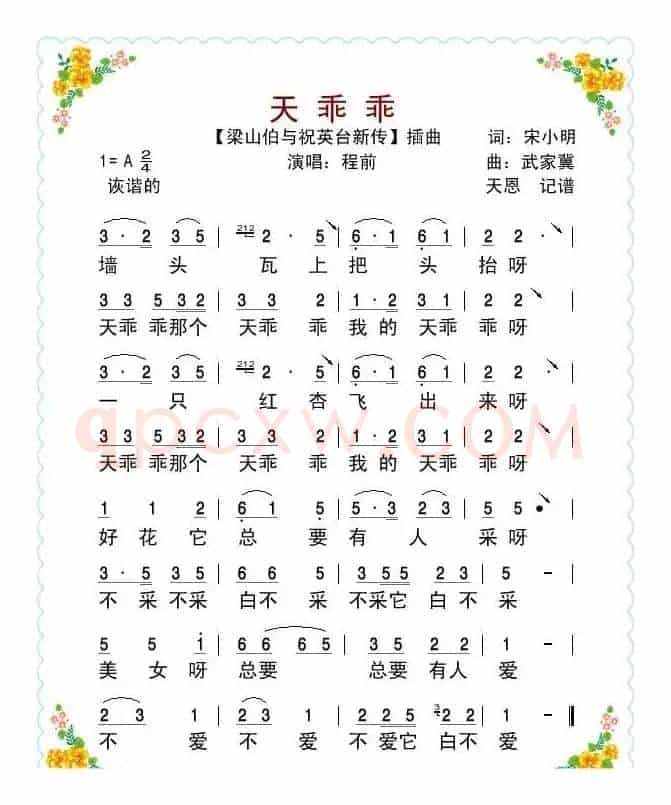 天乖乖
【梁山伯与祝英台新传】插曲 词：宋小明
1=A 2/4 演唱：程前 曲：武家冀
诙谐的 天恩 记谱
3 · 2 3 5 | 212 2 · 5 | 6 · 1 6 · 1 | 2 2 |
墙 头 瓦 上 把 头 抬 呀
3 3 5 3 2 | 3 3 2 | 1 · 2 3 1 | 2 2 |
天乖 乖那个 天乖 乖 我 的 天乖 乖 呀
3 · 2 3 5 | 212 2 · 5 | 6 · 1 6 · 1 | 2 5 |
一 只 红 杏 飞 出 来 呀
3 3 5 3 2 | 3 3 2 | 1 · 2 3 1 | 2 2 |
天乖 乖那个 天乖 乖 我 的 天乖 乖 呀
qpcxw.COM
1 1 2 | 6 1 5 | 5 · 3 2 3 | 2 5 • |
好 花 它 总 要 有 人 采 呀
3 · 5 3 5 | 6 5 5 | 3 5 5 3 2 | 5 - |
不 采 不采 白不 采 不采它 白不 采
5 5 1 | 6 6 5 3 | 3 5 2 2 | 1 - |
美 女 呀 总要 总要 有人 爱
2 3 1 | 2 3 1 | 2 2 5 3 2 2 | 1 - ‖
不 爱 不 爱 不 爱它 白不 爱